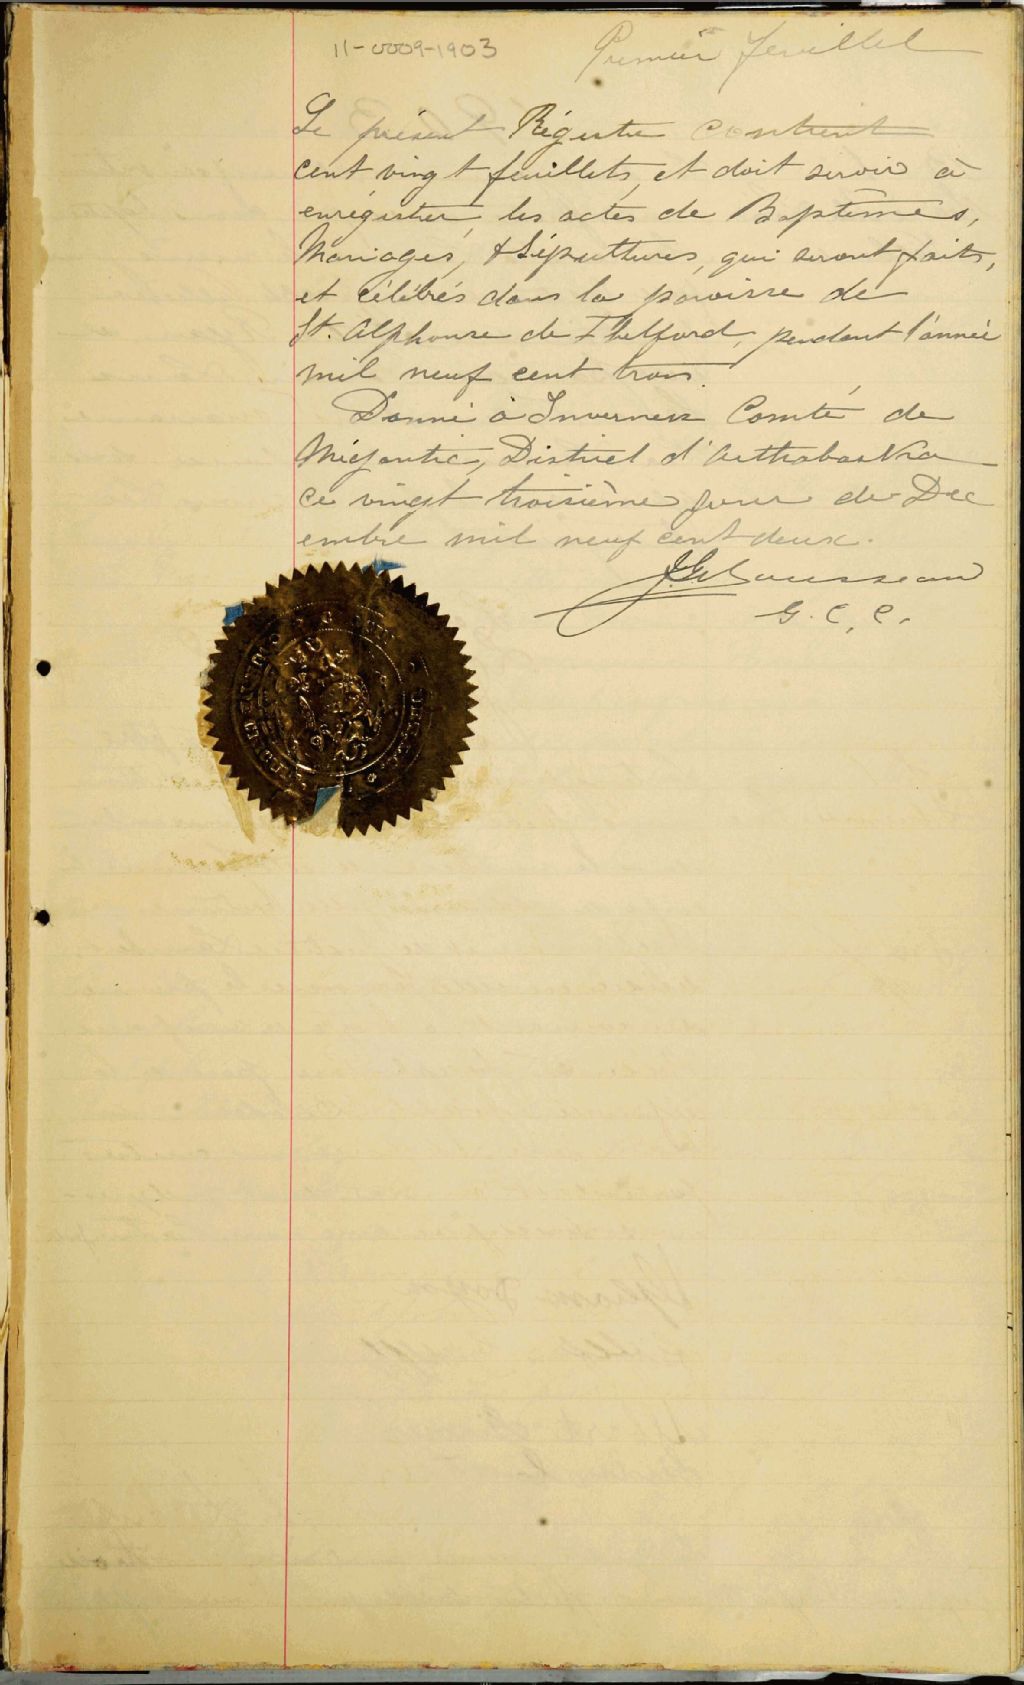 11-0009-1903
Premier feuillet
Le présent Régistre contient
cent vingt feuillets, et doit servir à
enrégistrer, les actes de Baptêmes,
Mariages, & Sépultures, qui seront faits,
et célébrés dans la paroisse de
St. Alphonse de Thetford, pendant l'année
mil neuf cent trois.
Donné à Inverness Comté de
Mégantic, District d'Arthabaska
ce vingt troisième jour de Déc
embre mil neuf cent deux.
Rousseau
G. C. C.